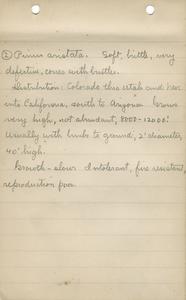 ② Pinus aristata. Soft, brittle, very
defective, cones with bristle.
Distribution: Colorado thru Utah and Nev.
into California, south to Arizona. Grows
very high, not abundant, 8000-12000'.
Usually with limbs to ground, 2' diameter,
40' high.
Growth - slow. Intolerant, fire resistant,
reproduction poor.